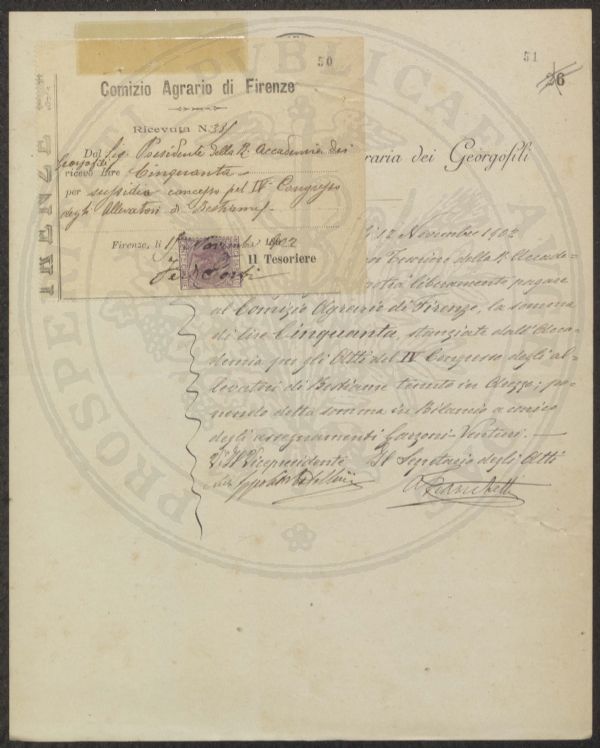 50
Comizio Agrario di Firenze
Ricevuta N. 
Dal Sig. Presidente della R. Accademia dei
Georgofili
ricevo lire Cinquanta
per sussidio concesso pel IV Congresso
degli Allevatori di Bestiame
Firenze, li Novembre 1902
Il Tesoriere
FIRENZE
51
26
raria dei Georgofili
li 12 Novembre 1902
della R. Accade-
liberamente pagare
al Comizio Agrario di Firenze, la somma
di lire Cinquanta, stanziate dall'Acca-
demia per gli Atti del IV Congresso degli al-
levatori di Bestiame tenuto in Arezzo; po-
nendo detta somma in Bilancio a carico
degli assegnamenti
Il Vicepresidente Il Segretario degli Atti
PROSPERITATI PUBLICAE AUGENDAE